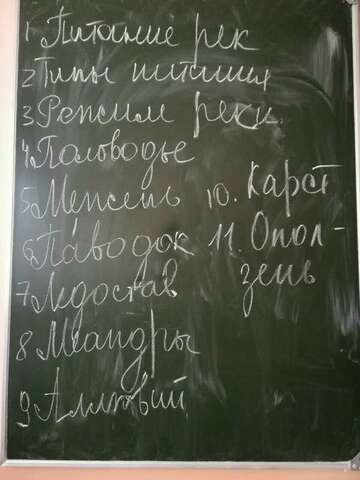 1 Питание рек
2 Типы питания
3 Режим реки.
4 Половодье
5 Межень
6 Паводок
7 Ледостав
8 Меандры
9 Аллювий
10. Карст
11. Опол-
зень